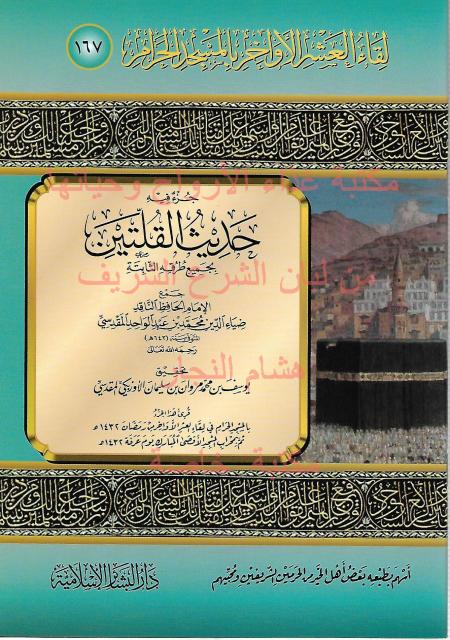 لقاء العشر الأواخر بالمسجد الحرام
١٦٧
مكتبة غذاء الأرواح وحياتها
جزء فيه
حديث القلتين
بجميع طرقه الثابتة
من لبان الشرع الشريف
جمع
الإمام الحافظ الناقد
ضياء الدين محمد بن عبد الواحد المقدسي
المتوفى سنة (٦٤٣هـ)
رحمه الله تعالى
هشام النجار
تحقيق
يوسف بن محمد مروان بن سليمان الأوزبكي المقدسي
قرئ هذا الجزء
بالمسجد الحرام في لقاء العشر الأواخر من رمضان ١٤٣٢هـ
ثم بمحراب المسجد الأقصى المبارك يوم عرفة ١٤٣٢هـ
مكتبة خاصة
أسهم بطبعه بعض أهل الخير من الحرمين الشريفين ومحبيهم
دار البشائر الإسلامية